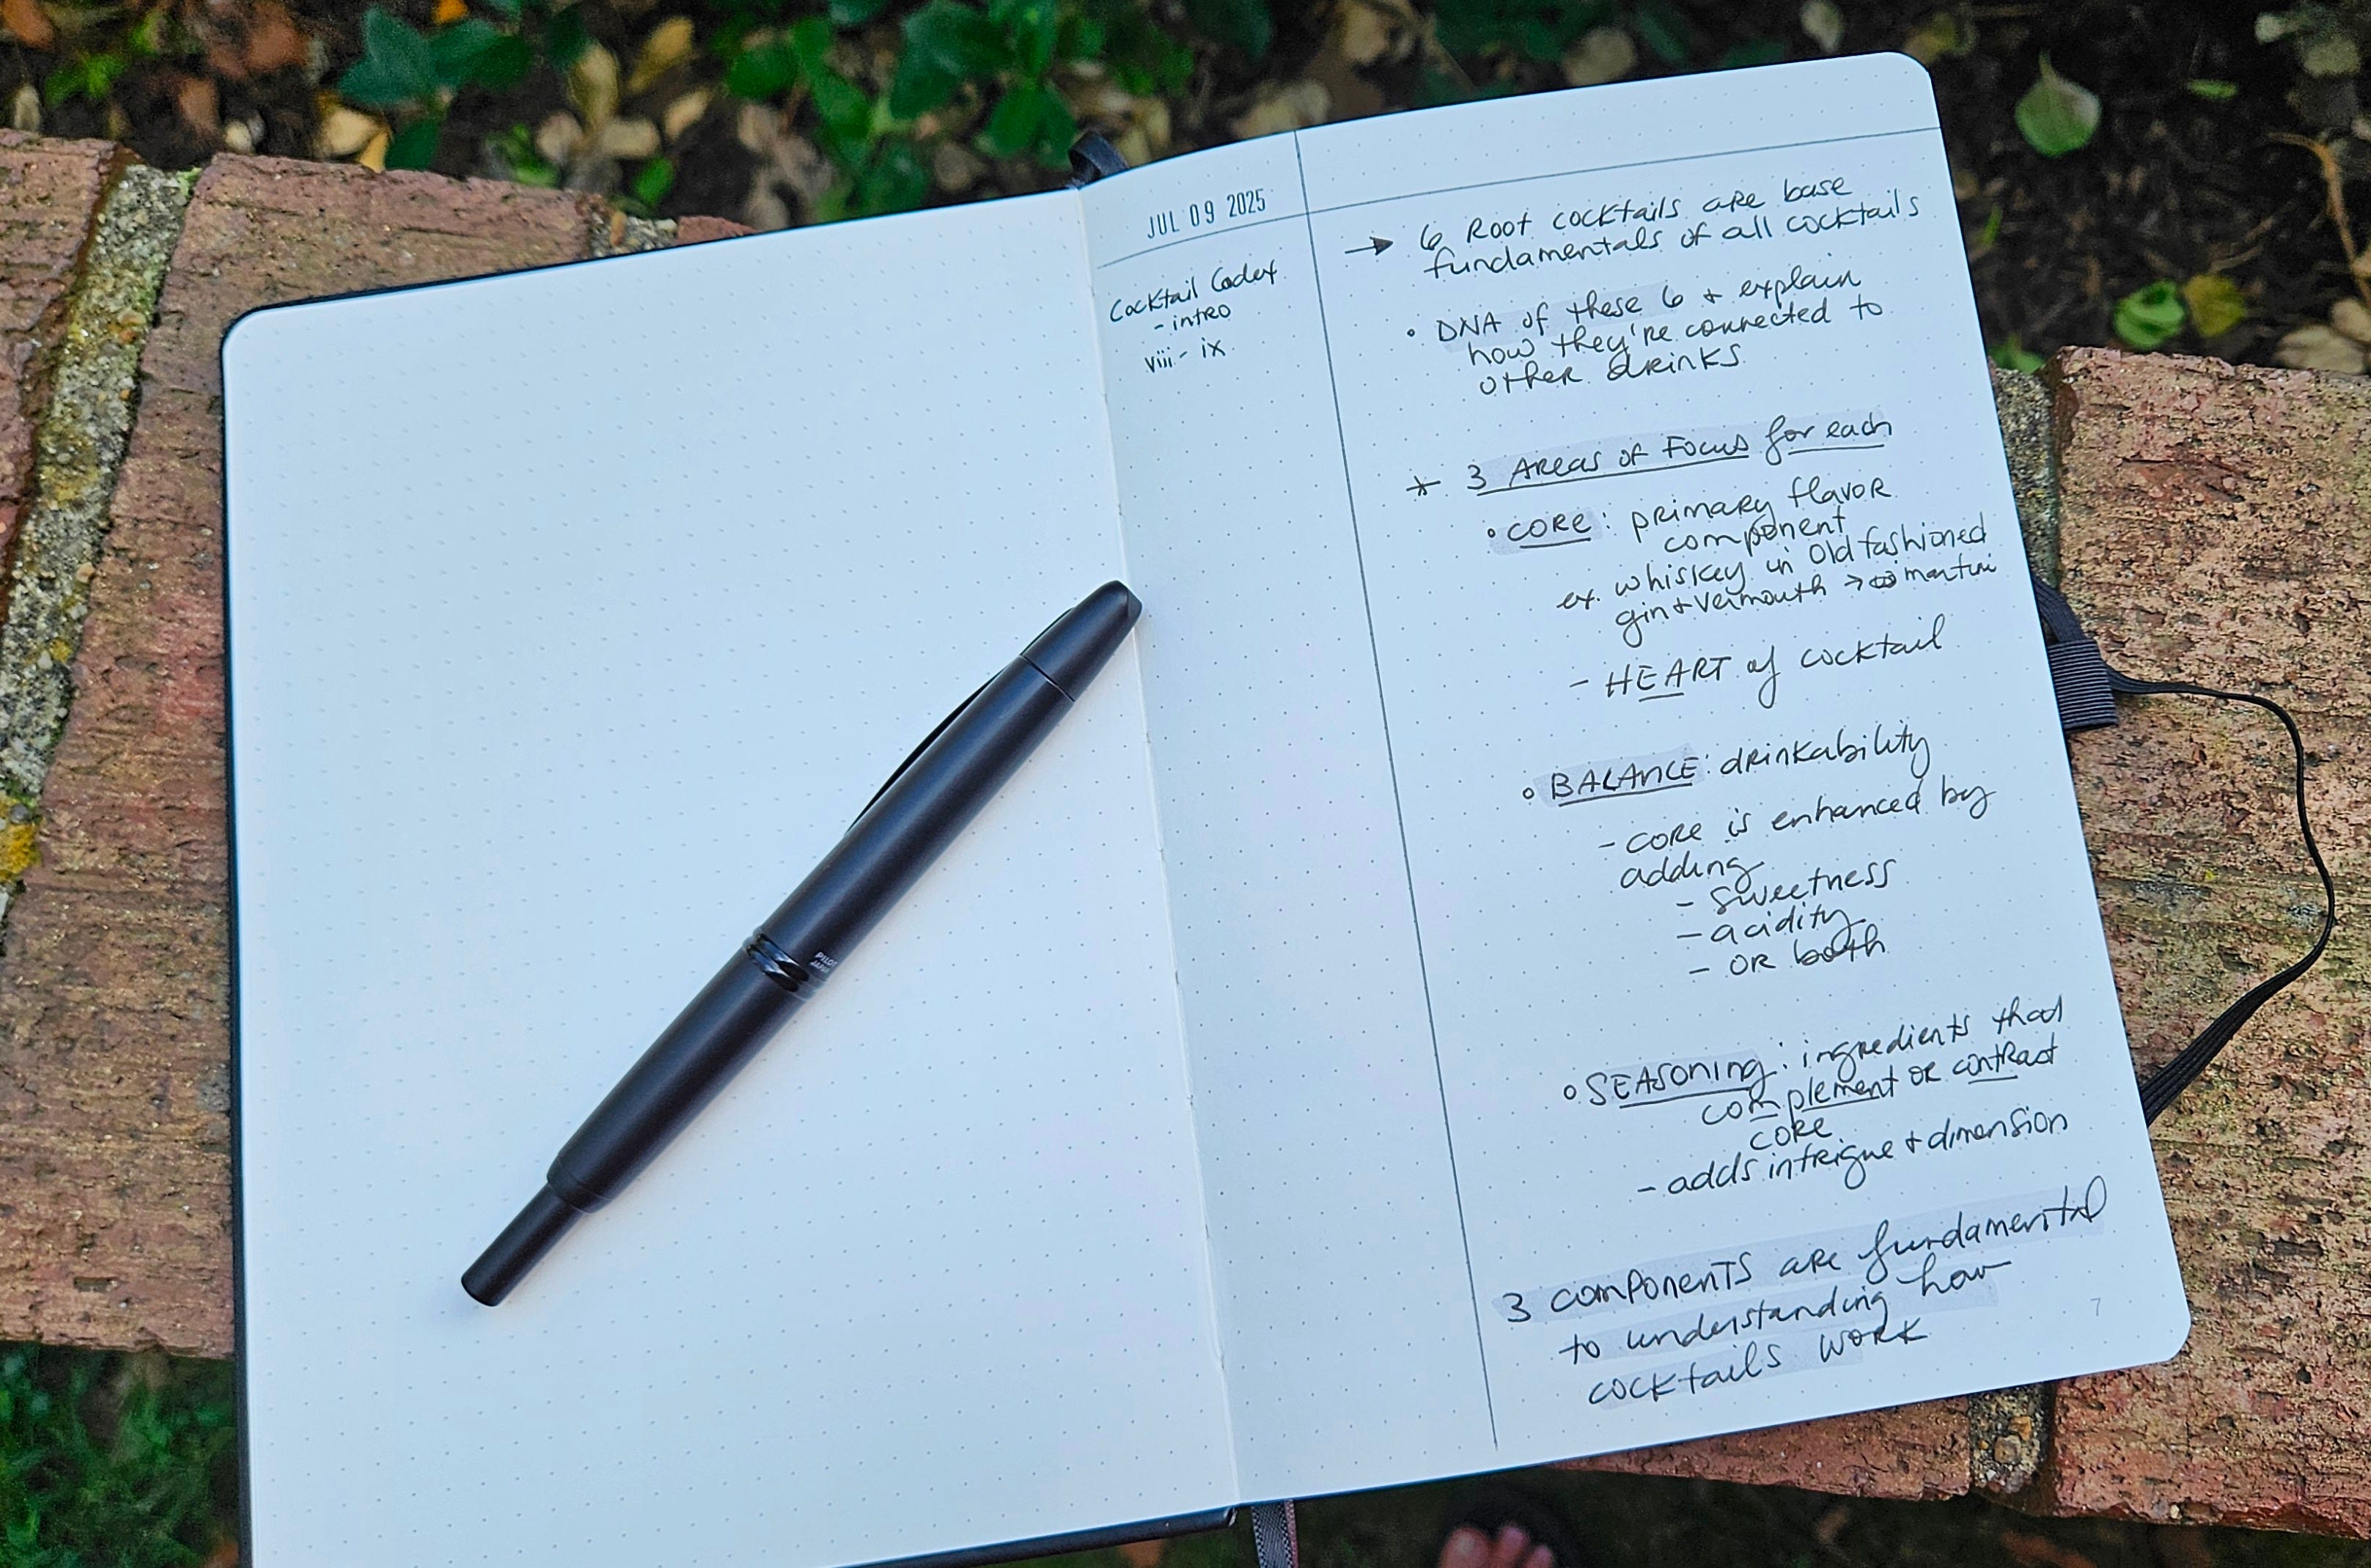 JUL 09 2025
Cocktail Codex
- intro
viii - ix
→ 6 Root cocktails are base
fundamentals of all cocktails
• DNA of these 6 + explain
how they're connected to
other drinks
* 3 Areas of Focus for each
• CORE: primary flavor
component
ex. whiskey in Old fashioned
gin + vermouth → martini
- HEART of cocktail
• BALANCE: drinkability
- core is enhanced by
adding
- sweetness
- acidity
- OR both
• SEASONING: ingredients that
complement or contrast
core
- adds intrigue + dimension
3 components are fundamental
to understanding how
cocktails work
7
PILOT
JAPAN